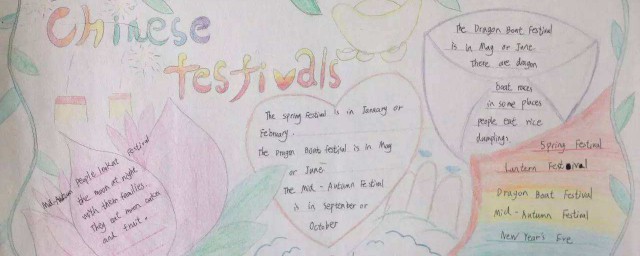 Chinese
festivals
Mid-Autumn Festival
People look at
the moon at night
with their families.
They eat moon cakes
and fruit.
The spring Festival is in January or
February.
The Dragon Boat Festival is in May
or June.
The Mid-Autumn Festival
is in September or
October
The Dragon Boat Festival
is in May or June.
There are dragon
boat races
in some places
people eat rice
dumplings
Spring Festival
Lantern Festival
Dragon Boat Festival
Mid-Autumn Festival
New Year's Eve